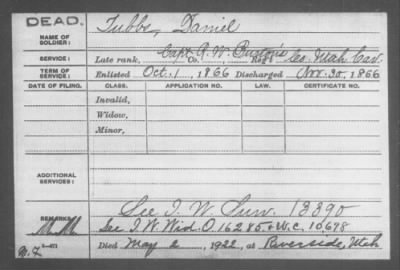 DEAD.
NAME OF SOLDIER: Tubbs, Daniel
SERVICE: Late rank, Co. Reg't Capt. A. W. Buxton's Co. Utah Cav.
TERM OF SERVICE: Enlisted Oct. 1, 1866 Discharged Nov. 30, 1866
DATE OF FILING. CLASS. APPLICATION NO. LAW. CERTIFICATE NO.
Invalid,
Widow,
Minor,
ADDITIONAL SERVICES:
See I. W. Surv. 13390
REMARKS: See I. W. Wid. O. 16285 & W. C. 10,678
Died May 2, 1922, at Riverside, Utah